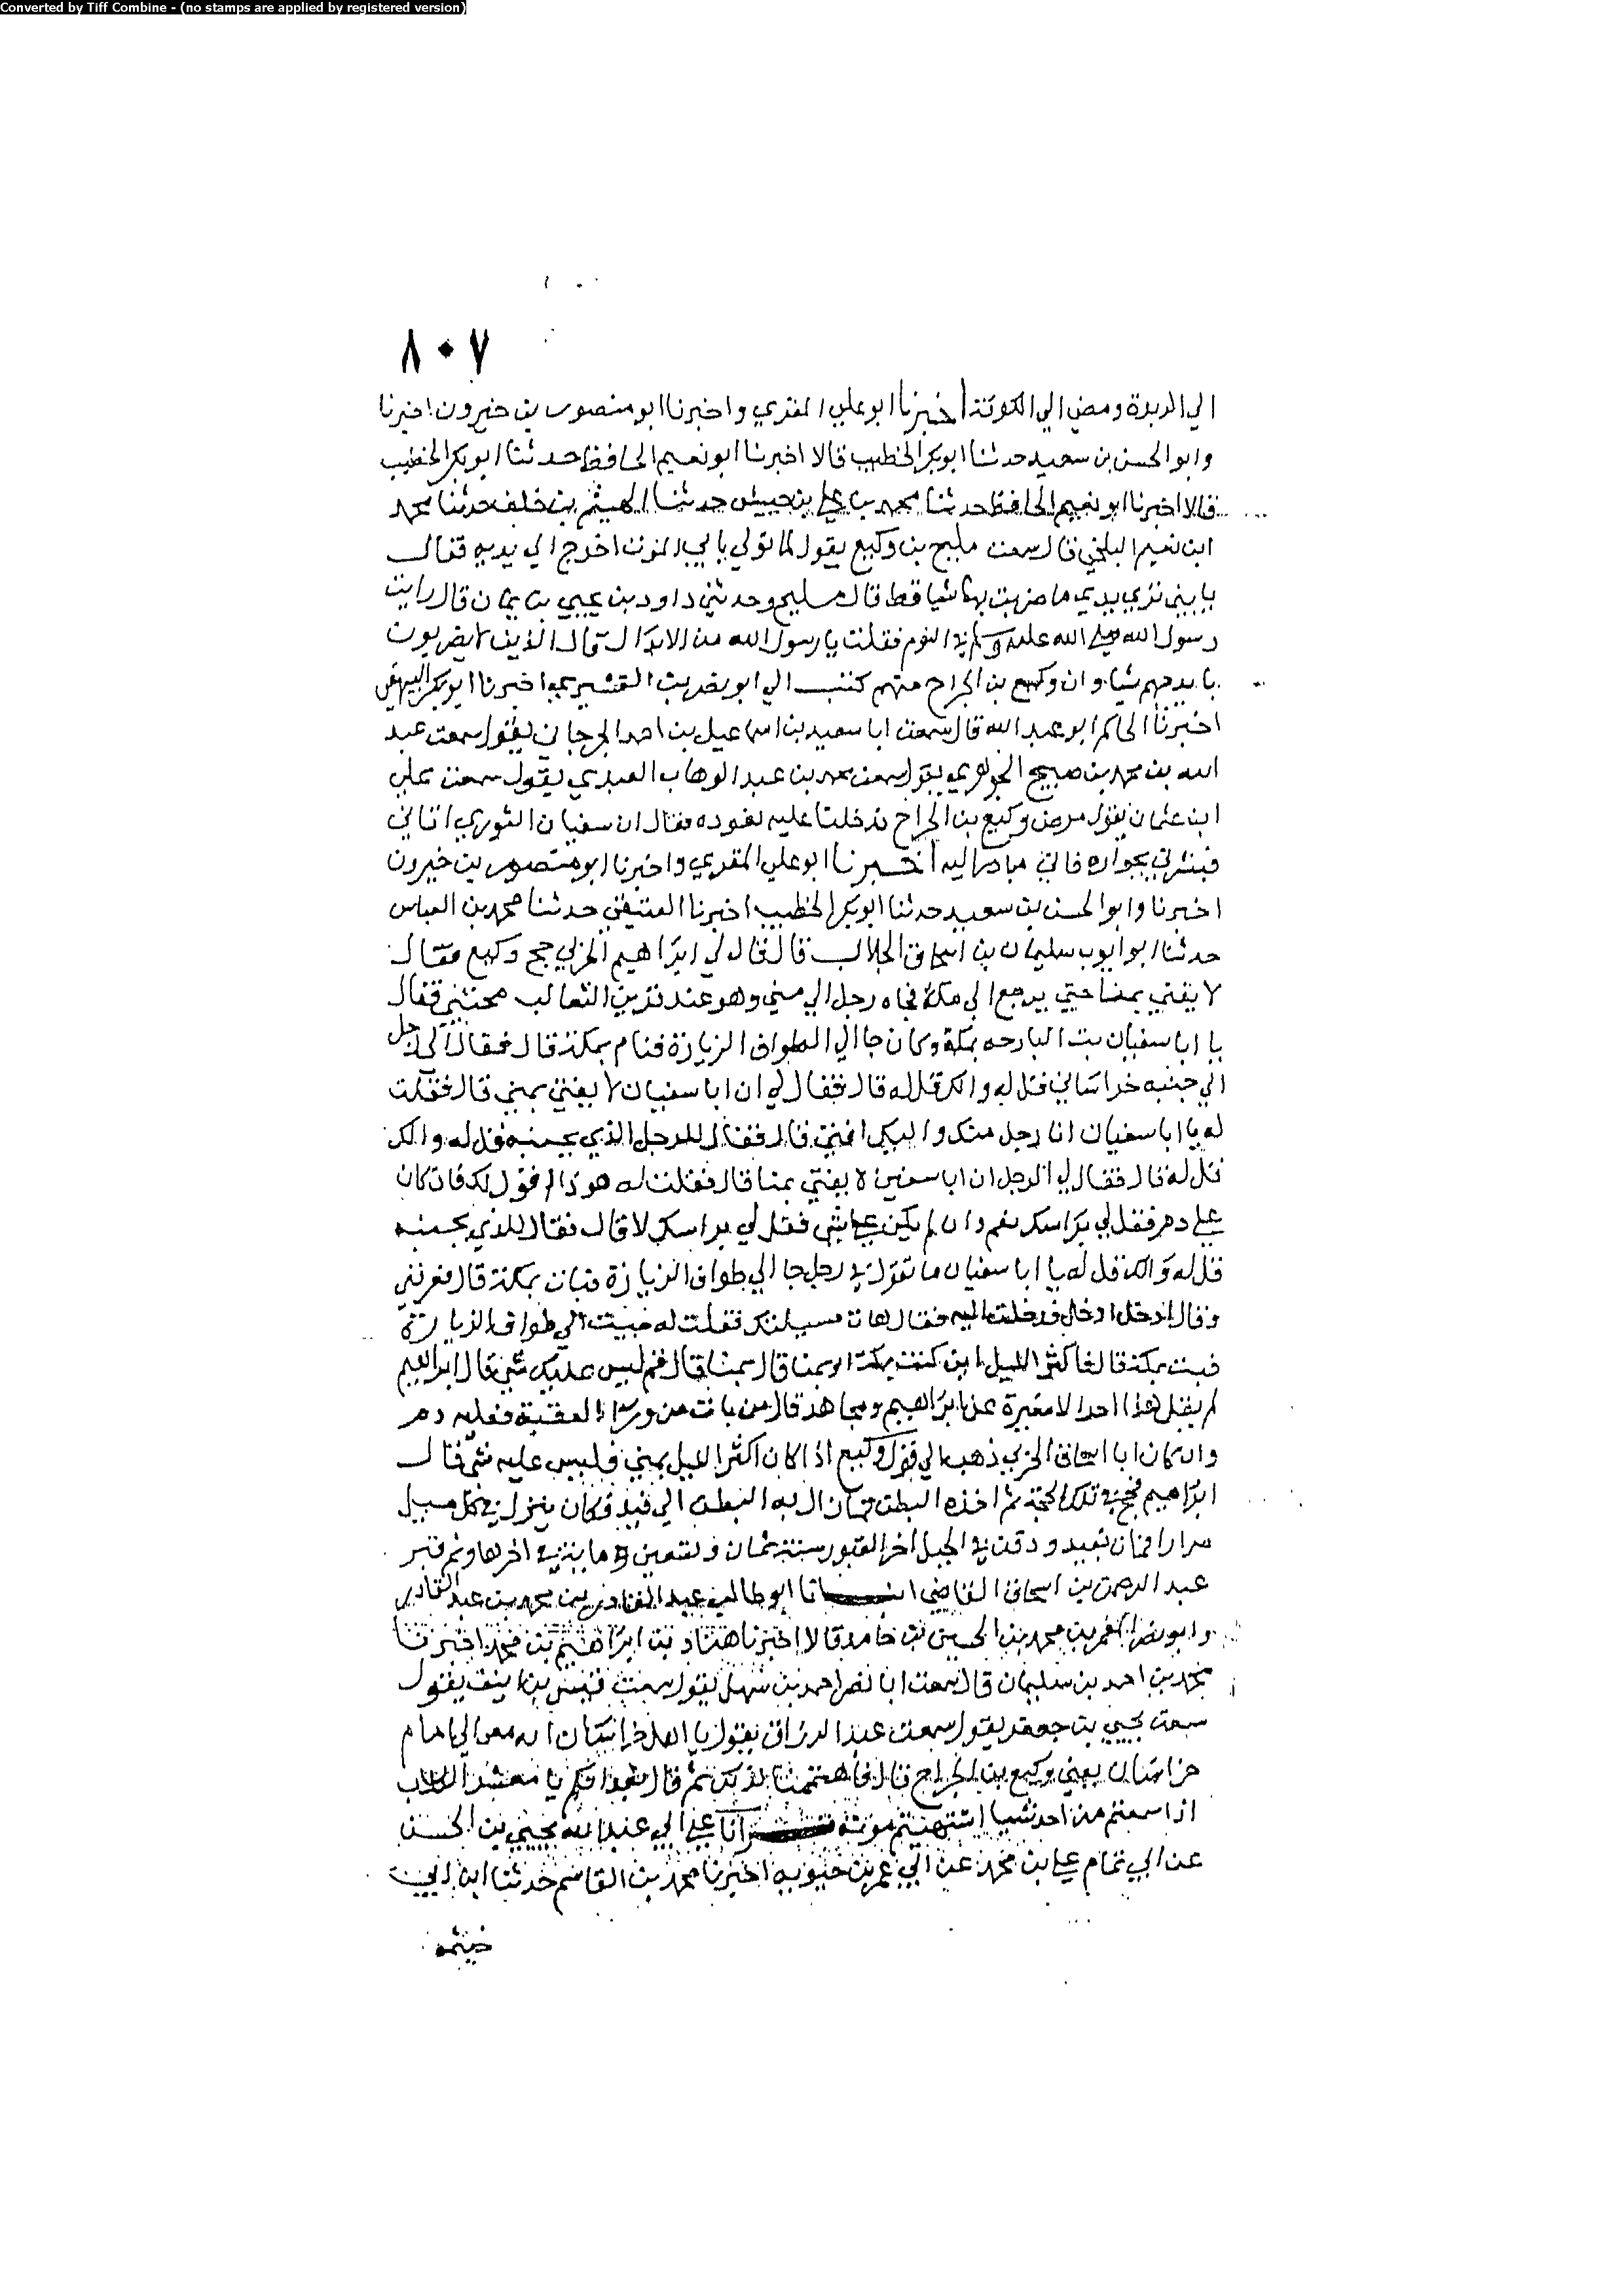 Converted by Tiff Combine - (no stamps are applied by registered version)
٨٠٧
الي الربدة ومضي الي الكوفة اخبرنا ابو علي المقري واخبرنا ابو منصور بن خيرون اخبرنا
وابو الحسن بن سعيد حدثنا ابو بكر الخطيب قالا اخبرنا ابو نعيم الحافظ حدثنا ابو بكر الخطيب
قالا اخبرنا ابو نعيم الحافظ حدثنا محمد بن علي بن حبيش حدثنا الهيثم بن خلف حدثنا محمد
ابن نعيم البلخي قال سمعت مليح بن وكيع يقول لما نزل بابي الموت اخرج الي يديه فقال
يا بني تري يدي ما ضربت بهما شيا قط قال مليح وحدثني داود بن يحيي بن يمان قال رايت
رسول الله صلي الله عليه وسلم في النوم فقلت يا رسول الله من الابدال قال الذين لا يضربون
بايديهم شيا وان وكيع بن الجراح منهم كتب الي ابو نصر بن القشيري اخبرنا ابو بكر البيهقي
اخبرنا الحاكم ابو عبد الله قال سمعت ابا سعيد بن اسماعيل بن احمد الجرجاني يقول سمعت عبد
الله بن محمد بن صبيح الجوهري يقول سمعت محمد بن عبد الوهاب العبدي يقول سمعت علي
ابن عثمان يقول مرض وكيع بن الجراح فدخلنا عليه نعوده فقال ان سفيان الثوري اتاني
فبشرني بجواره فاني مبادر اليه اخبرنا ابو علي المقري واخبرنا ابو منصور بن خيرون
اخبرنا وابو الحسن بن سعيد حدثنا ابو بكر الخطيب اخبرنا العتيقي حدثنا محمد بن العباس
حدثنا ابو ايوب سليمان بن اسحاق الجلاب قال قال لي ابراهيم الحربي حج وكيع فقال
لا يفتي بمنا حتي يرجع الي مكة فجاه رجل الي مني وهو عند قرين الثعالب فقال
يا ابا سفيان بت البارحه بمكة وكان جا الي الطواف الزيارة فنام بمكة قال فقال لي رجل
الي جنبه خراساني قل له والك قل له قال فقال لي ان ابا سفيان لا يفتي بمني قال فقلت
له يا ابا سفيان انا رجل منك واليك افتني قال فقال للرجل الذي بجنبه قل له والك
قل له قال فقال لي الرجل ان ابا سفين لا يفتي بمنا قال فقلت له هو ذا اقول لك فان كان
علي دم فقل لي براسك نعم وان لم يكن علي شي فقل لي براسك لا قال فقال للذي بجنبه
قل له والك قل له يا ابا سفيان ما تقول في رجل جا الي طواف الزيارة فبات بمكة قال فعرفني
وقال ادخل ادخل فدخلت اليه فقال هات مسيلتك فقلت له جيت الي طواف الزيارة
فبت بمكة قال فاكثر الليل اين كنت بمكة او بمنا قال بمنا قال قم ليس عليك شي قال ابراهيم
لم يقل هذا احد الا مغيرة عن ابراهيم ومجاهد قال من بات من ورا العقبة فعليه دم
وان كان ابا اسحاق الحربي ذهب الي قول وكيع اذا كان اكثر الليل بمني فليس عليه شي قال
ابراهيم فحج في تلك الحجة ثم اخذه البطن فمازال به البطن الي فيد فكان ينزل في كل ميل
مرارا فمات بفيد ودفن في الجبل اخر القبور سنة ثمان وتسعين وماية في اخرها وثم قبر
عبد الرحمن بن اسحاق القاضي انبانا ابو طالب عبد القادر بن محمد بن عبد القادر
وابو نصر المعمر بن محمد بن الحسين بن حامد قالا اخبرنا هناد بن ابراهيم بن محمد اخبرنا
محمد بن احمد بن سليمان قال سمعت ابا نصر احمد بن سهل يقول سمعت قيس بن انيف يقول
سمعت يحيي بن جعفر يقول سمعت عبد الرزاق يقول يا اهل خراسان انه نعي الي امام
خراسان يعني وكيع بن الجراح قال فاهتممنا لذلك ثم قال بعدا لكم يا معشر الكلاب
اذا سمعتم من احد شيا اشتهيتم موته قرانا علي ابي عبد الله يحيي بن الحسن
عن ابي تمام علي بن محمد عن ابي عمر بن حيويه اخبرنا محمد بن القاسم حدثنا ابن ابي
خيثمه